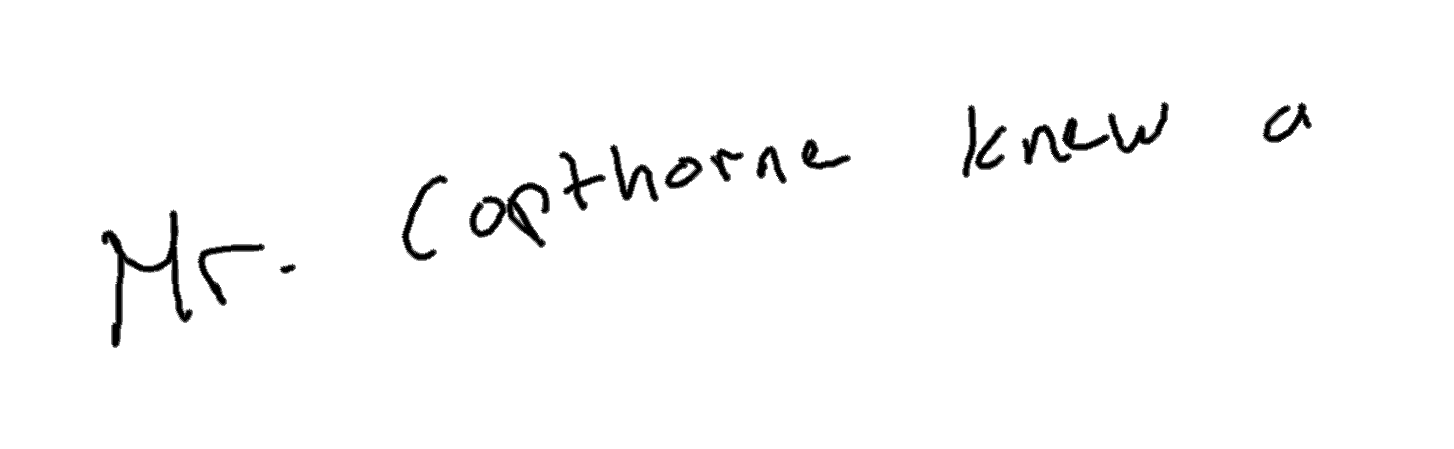 Mr. Copthorne knew a